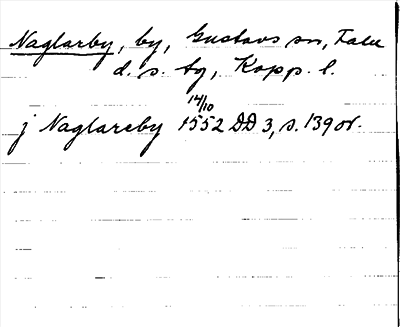 Naglarby, by, Gustavs sn, Falu
d. s. tg, Kopp. l.
14/10
j Naglareby 1552 DD 3, s. 139 or.